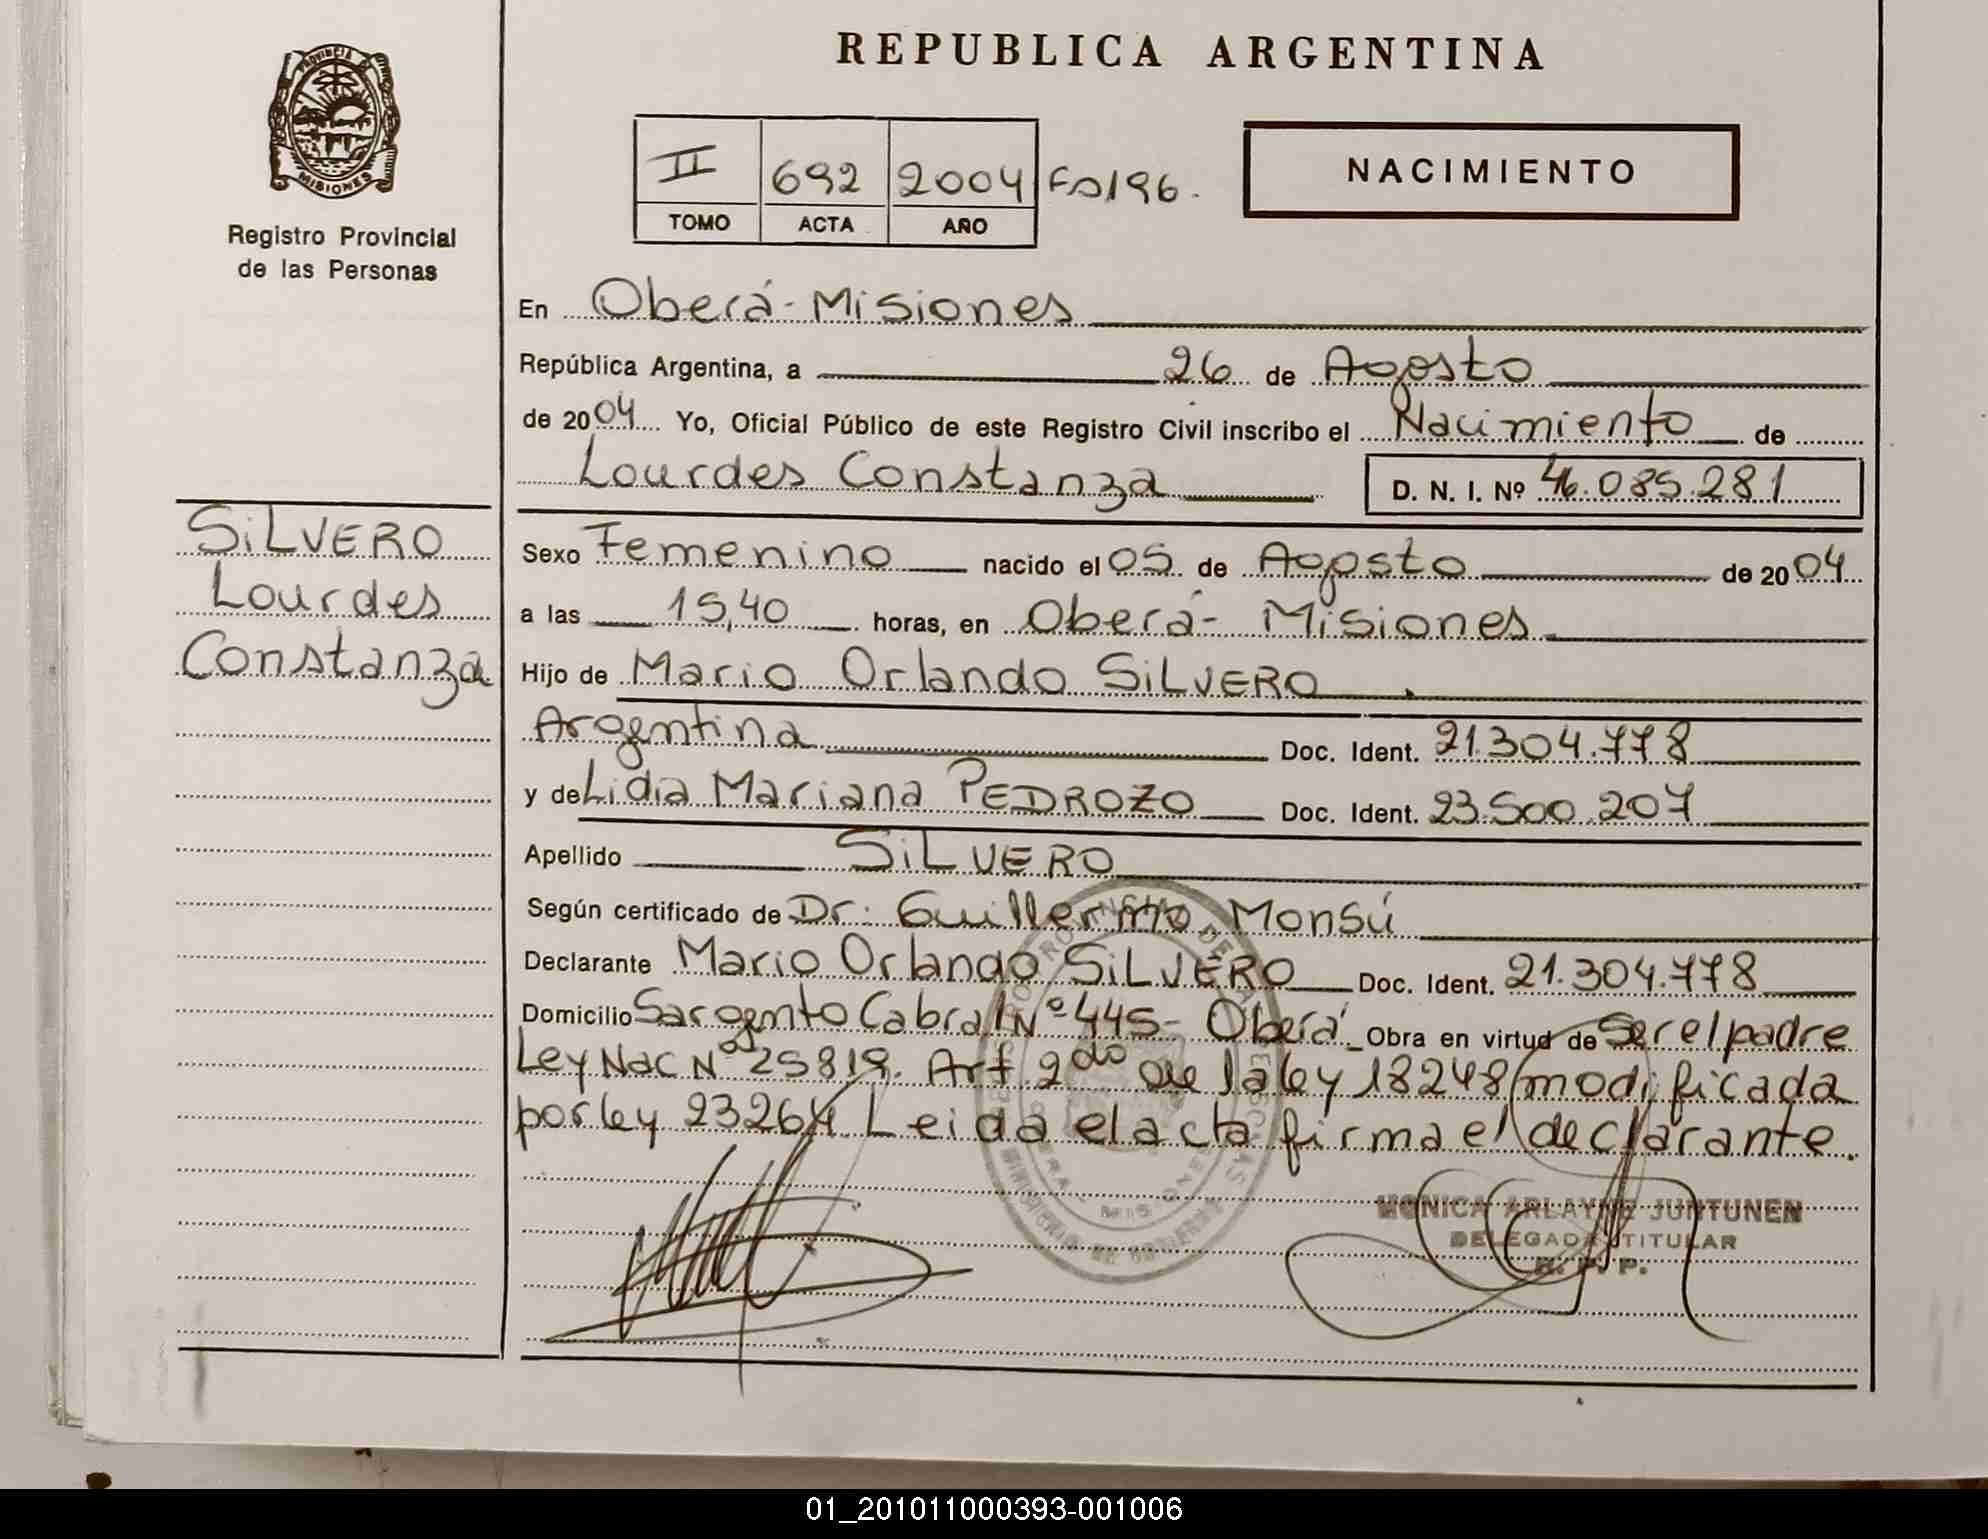 PROVINCIA DE
MISIONES
Registro Provincial
de las Personas
REPUBLICA ARGENTINA
II 692 2004 Fº196.
TOMO ACTA AÑO
NACIMIENTO
En Oberá-Misiones
República Argentina, a 26 de Agosto
de 2004 Yo, Oficial Público de este Registro Civil inscribo el Nacimiento de
Lourdes Constanza D. N. I. Nº 46.085.281
SiLVERO
Lourdes
Constanza
Sexo Femenino nacido el 05 de Agosto de 2004
a las 15,40 horas, en Oberá- Misiones
Hijo de Mario Orlando SiLVERO
Argentina Doc. Ident. 21.304.778
y de Lidia Mariana PEDROZO Doc. Ident. 23.500.207
Apellido SiLVERO
Según certificado de Dr: Guillermo Monsú
Declarante Mario Orlando SiLVERO Doc. Ident. 21.304.778
Domicilio Sargento Cabral Nº 445- Oberá Obra en virtud de Ser el padre
Ley Nac Nº 25819. Art 2do de la ley 18248 modificada
por ley 23264 Leida el acta firma el declarante.
MONICA ARLAYNE JUNTUNEN
DELEGADA TITULAR
R. P. P.
01_201011000393-001006